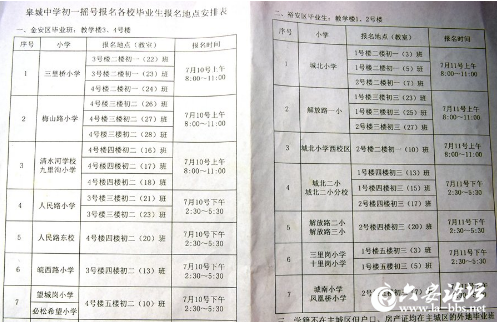 皋城中学初一摇号报名各校毕业生报名地点安排表
一、金安区毕业班：教学楼3、4号楼
序号 小学 报名地点（教室） 报名时间
1 三里桥小学 3号楼二楼初一（22）班 7月10号上午 8:00～11:00
3号楼二楼初一（23）班
4号楼二楼初一（24）班
2 梅山路小学 4号楼三楼初二（26）班 7月10号上午 8:00～11:00
4号楼三楼初二（27）班
4号楼三楼初二（28）班
3 清水河学校 九里沟小学 4号楼四楼初二（16）班 7月10号上午 8:00～11:00
4号楼四楼初二（17）班
4号楼四楼初二（18）班
4 人民路小学 3号楼三楼初二（21）班 7月10号下午 2:30～5:30
3号楼三楼初二（23）班
5 人民路东校 4号楼四楼初二（20）班 7月10号下午 2:30～5:30
6 皖西路小学 3号楼四楼初二（13）班 7月10号下午 2:30～5:30
7 望城岗小学 必松希望小学 4号楼五楼初二（10）班 7月10号下午 2:30～5:30
二、裕安区毕业生：教学楼1、2号楼
序号 小学 报名地点（教室） 报名时间
1 城北小学 1号楼二楼初一（3）班 7月11号上午 8:00～11:00
1号楼二楼初一（5）班
2号楼二楼初一（7）班
2 解放路一小 1号楼三楼初三（23）班 7月11号上午 8:00～11:00
1号楼三楼初三（25）班
2号楼三楼初三（27）班
3 城北小学西校区 2号楼二楼初一（10）班 7月11号上午 8:00～11:00
4 城北二小 城北小学二分校 1号楼四楼初三（13）班 7月11号下午 2:30～5:30
1号楼四楼初三（15）班
2号楼四楼初三（17）班
5 解放路二小 解放路三小 2号楼四楼初三（20）班 7月11号下午 2:30～5:30
6 三里岗小学 十里岗小学 1号楼五楼初三（3）班 7月11号下午 2:30～5:30
1号楼五楼初三（5）班
7 城南小学 凤凰桥小学 2号楼五楼初三（7）班
六安论坛
www.la-bbs.net